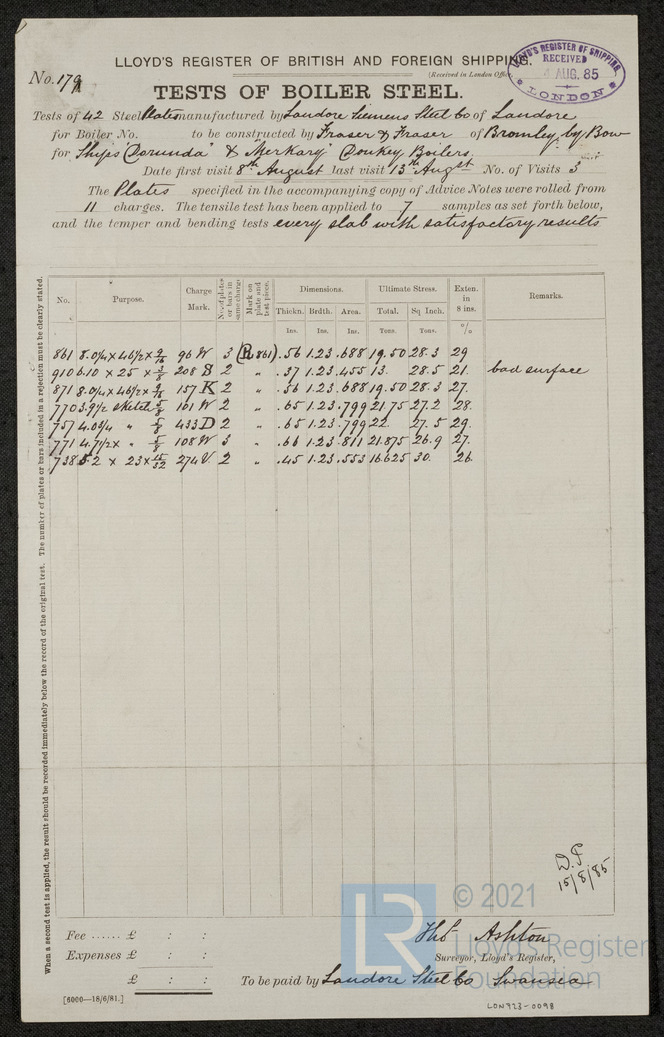 LLOYD'S REGISTER OF BRITISH AND FOREIGN SHIPPING.
No. 179
(Received in London Office
LLOYD'S REGISTER OF SHIPPING RECEIVED AUG. 85 LONDON
TESTS OF BOILER STEEL.
Tests of 42 Steel Plates manufactured by Landore Siemens Steel Co of Landore
for Boiler No. to be constructed by Fraser & Fraser of Bromley by Bow
for Ships "Dorunda" & "Merkara" Donkey Boilers.
Date first visit 8th August last visit 13th Augst No. of Visits 3
The Plates specified in the accompanying copy of Advice Notes were rolled from
11 charges. The tensile test has been applied to 7 samples as set forth below,
and the temper and bending tests every slab with satisfactory results
No. Purpose. Charge Mark. No. of plates or bars in same charge Mark on plate and test piece. Dimensions. Ultimate Stress. Exten. in 8 ins. Remarks.
Thickn. Brdth. Area. Total. Sq Inch.
Ins. Ins. Ins. Tons. Tons. %
861 8.0¼ × 46½ × 9/16 96 W 3 (R 861) .56 1.23 .688 19.50 28.3 29
910 6.10 × 25 × 3/8 208 S 2 " .37 1.23 .455 13. 28.5 21. bad surface
871 8.0¼ × 46½ × 9/16 157 K 2 " .56 1.23 .688 19.50 28.3 27.
770 3.9½ sketch 5/8 101 W 2 " .65 1.23 .799 21.75 27.2 28.
757 4.0¾ " 5/8 433 D 2 " .65 1.23 .799 22. 27.5 29.
771 4.7½ × " 5/8 108 W 3 " .66 1.23 .811 21.875 26.9 27.
738 5.2 × 23 × 15/32 274 V 2 " .45 1.23 .553 16.625 30. 26.
When a second test is applied, the result should be recorded immediately below the record of the original test. The number of plates or bars included in a rejection must be clearly stated.
15/8/85
© 2021
LR
Lloyd's Register
Foundation
Fee ...... £ : :
Expenses £ : :
£ : :
Thos Ashton
Surveyor, Lloyd's Register,
To be paid by Landore Steel Co Swansea
[6000—18/6/81.]
LON923-0098